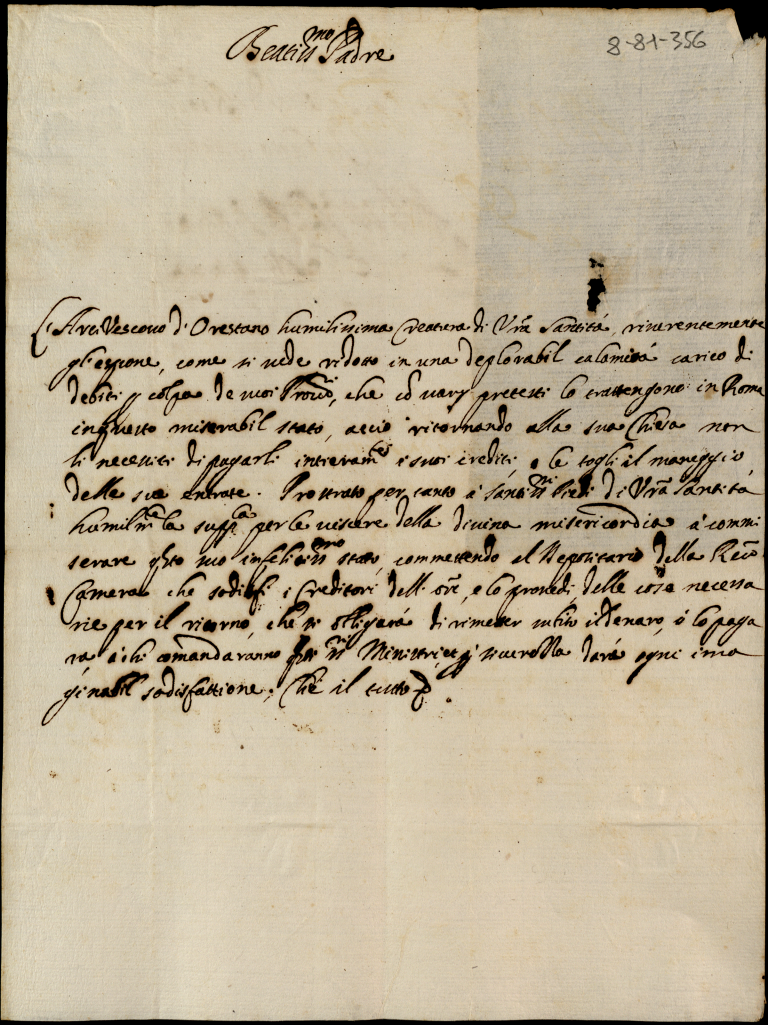 Beatiss.mo Padre
8-81-356
L'ArciVescouo d'Orestano humilissima Creatura di Vrã Santità, riuerentemente
gli espone, come si uede ridotto in una deplorabil calamità carico di
debiti p colpa de suoi Procuri, che cõ uarij pretesti lo trattengono in Roma
in questo miserabil stato, acciò ritornando alla sua Chiesa non
li necessiti di pagarli intieram.te i suoi crediti, o le togli il maneggio
delle sue entrate. Prostrato per tanto a' Santiss.mi Piedi di Vrã Santità
humilm.te la supp.ca per le uiscere della diuina misericordia à commi
serare qsto suo infeliciss.mo stato, commettendo al Depositario della Reũ.
Camera che sodisfi i Creditori dell' orẽ, e lo prouedi delle cose necessa
rie per il ritorno, che si obligarà di rimetter subito il denaro, ò lo paga
rà à chi comandaranno Ministri, et p sicurezza darà ogni ima
ginabil sodisfattione. Che il tutto &